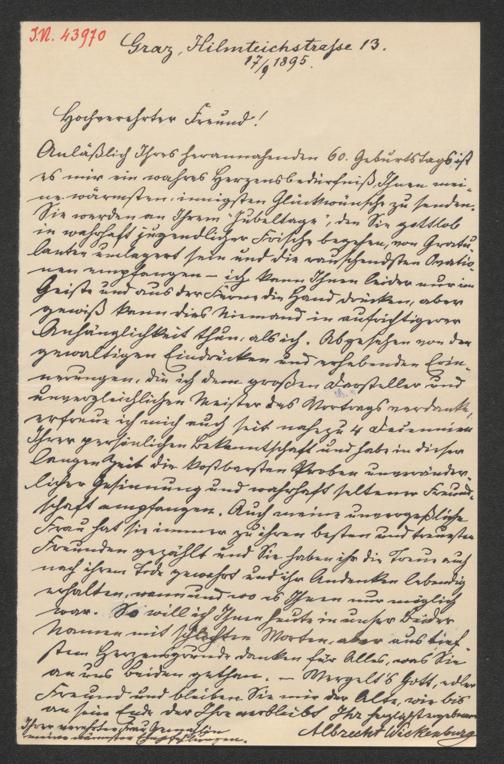 I.N. 43970
Graz, Hilmteichstraße 13.
17/9 1895.
Hochverehrter Freund!
Anläßlich Ihres herannahenden 60. Geburtstags ist
es mir ein wahres Herzensbedürfniß, Ihnen mei-
ne wärmsten, innigsten Glückwünsche zu senden.
Sie werden an Ihrem "Jubeltage", den Sie gottlob
in wahrhaft jugendlicher Frische begehen, von Gratu-
lanten umlagert sein und die rauschendsten Ovatio-
nen empfangen – ich kann Ihnen leider nur im
Geist und aus der Ferne die Hand drücken, aber
gewiß kann dies Niemand in aufrichtigerer
Anhänglichkeit thun, als ich. Abgesehen von den
gewaltigen Eindrücken und erhebenden Erin-
nerungen, die ich dem großen Darsteller und
unvergleichlichen Meister des Vortrags verdanke,
erfreue ich mich auch seit nahezu 4 Decennien
Ihrer persönlichen Bekanntschaft und habe in dieser
langen Zeit die kostbarsten Proben unveränder-
licher Gesinnung und wahrhaft seltener Freund-
schaft empfangen. Auch meine unvergeßliche
Frau hat Sie immer zu ihren besten und treuesten
Freunden gezählt und Sie haben ihr die Treue auch
nach ihrem Tode gewahrt und ihr Andenken lebendig
erhalten, wann und wo es Ihnen nur möglich
war. So will ich Ihnen heute in unser Beider
Namen mit schlichten Worten, aber aus tief-
stem Herzensgrunde danken für Alles, was Sie
an uns beiden gethan. – Vergelt's Gott, edler
Freund und bleiben Sie mir der Alte, wie bis
an sein Ende der Ihre verbleibt Ihr herzlichst ergebener
Albrecht Wickenburg
Ihrer verehrten Frau Gemahlin
meine wärmsten Empfehlungen.